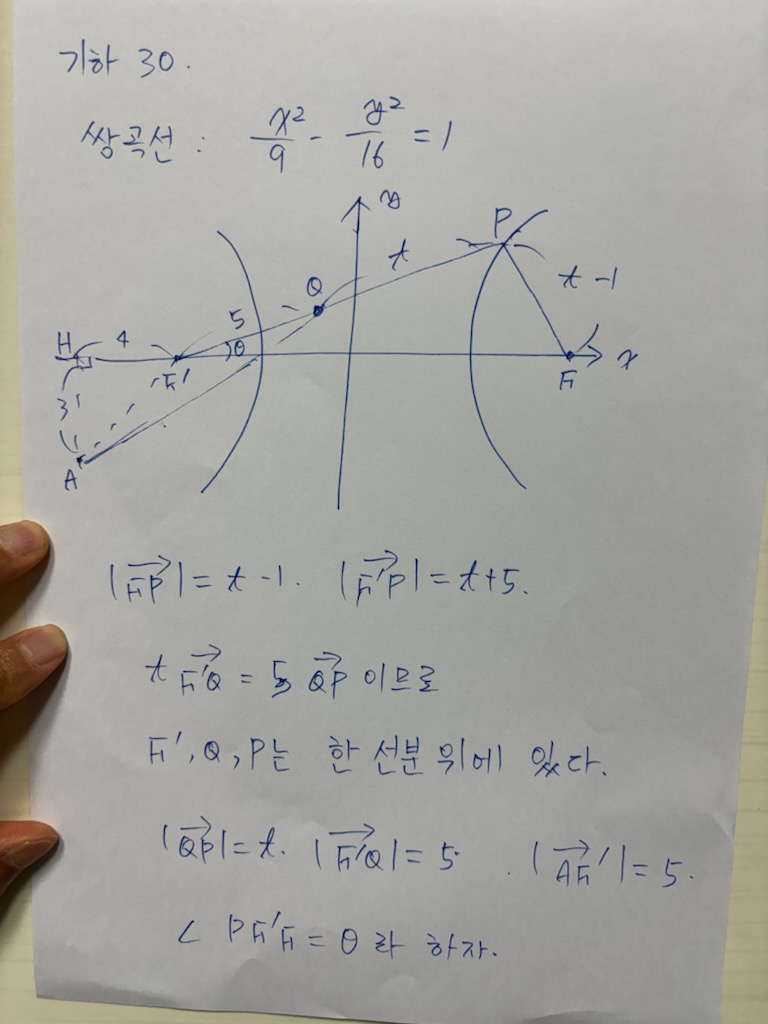 기하 30.
쌍곡선 : x²/9 - y²/16 = 1
y
P
t
Q
t-1
5
H
4
θ
F'
F
x
3
A
|FP| = t-1. |F'P| = t+5.
t F'Q = 5 QP 이므로
F', Q, P는 한 선분 위에 있다.
|QP| = t. |F'Q| = 5. |AF'| = 5.
∠ PF'F = θ라 하자.